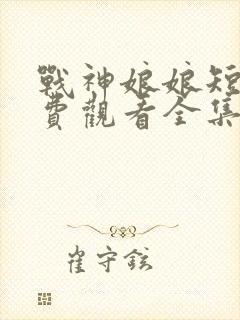 戰神娘娘短
費觀看全集
崔守鉉